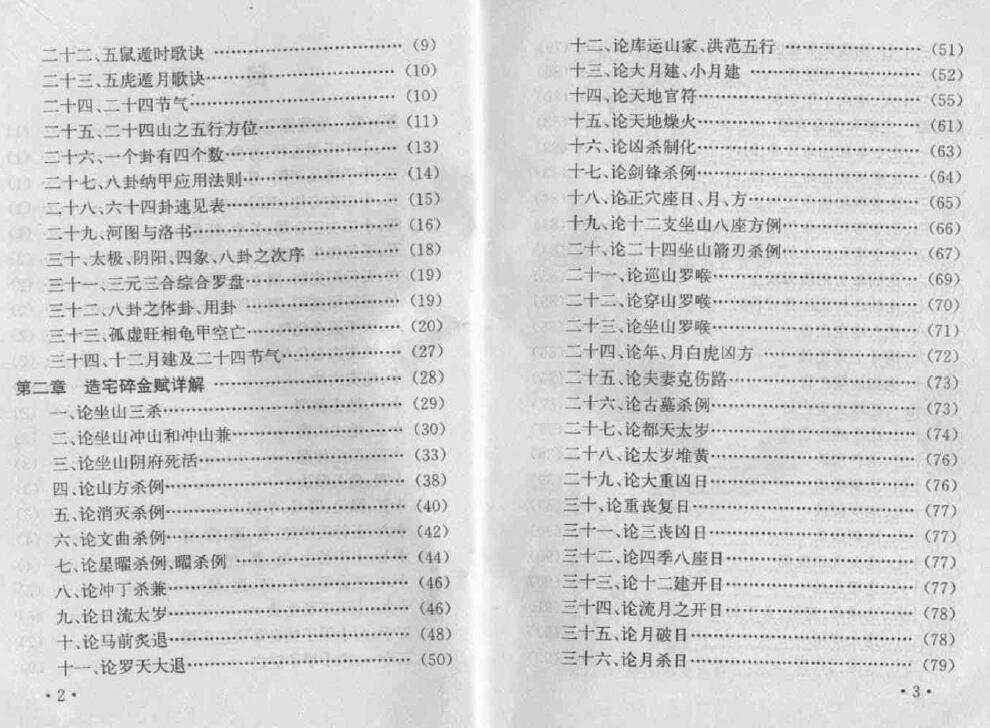 二十二、五鼠遁时歌诀……(9)
二十三、五虎遁月歌诀……(10)
二十四、二十四节气……(10)
二十五、二十四山之五行方位……(11)
二十六、一个卦有四个数……(13)
二十七、八卦纳甲应用法则……(14)
二十八、六十四卦速见表……(15)
二十九、河图与洛书……(16)
三十、太极、阴阳、四象、八卦之次序……(18)
三十一、三元三合综合罗盘……(19)
三十二、八卦之体卦、用卦……(19)
三十三、孤虚旺相龟甲空亡……(20)
三十四、十二月建及二十四节气……(27)
第二章 造宅碎金赋详解……(28)
一、论坐山三杀……(29)
二、论坐山冲山和冲山兼……(30)
三、论坐山阴府死活……(33)
四、论山方杀例……(38)
五、论消灭杀例……(40)
六、论文曲杀例……(42)
七、论星曜杀例、曜杀例……(44)
八、论冲丁杀兼……(46)
九、论日流太岁……(46)
十、论马前炙退……(48)
十一、论罗天大退……(50)
·2·
十二、论库运山家、洪范五行……(51)
十三、论大月建、小月建……(52)
十四、论天地官符……(55)
十五、论天地燥火……(61)
十六、论凶杀制化……(63)
十七、论剑锋杀例……(64)
十八、论正穴座日、月、方……(65)
十九、论十二支坐山八座方例……(66)
二十、论二十四坐山箭刃杀例……(67)
二十一、论巡山罗喉……(69)
二十二、论穿山罗喉……(70)
二十三、论坐山罗喉……(71)
二十四、论年、月白虎凶方……(72)
二十五、论夫妻克伤路……(73)
二十六、论古墓杀例……(73)
二十七、论都天太岁……(74)
二十八、论太岁堆黄……(76)
二十九、论大重凶日……(76)
三十、论重丧复日……(77)
三十一、论三丧凶日……(77)
三十二、论四季八座日……(77)
三十三、论十二建开日……(77)
三十四、论流月之开日……(78)
三十五、论月破日……(78)
三十六、论月杀日……(79)
·3·